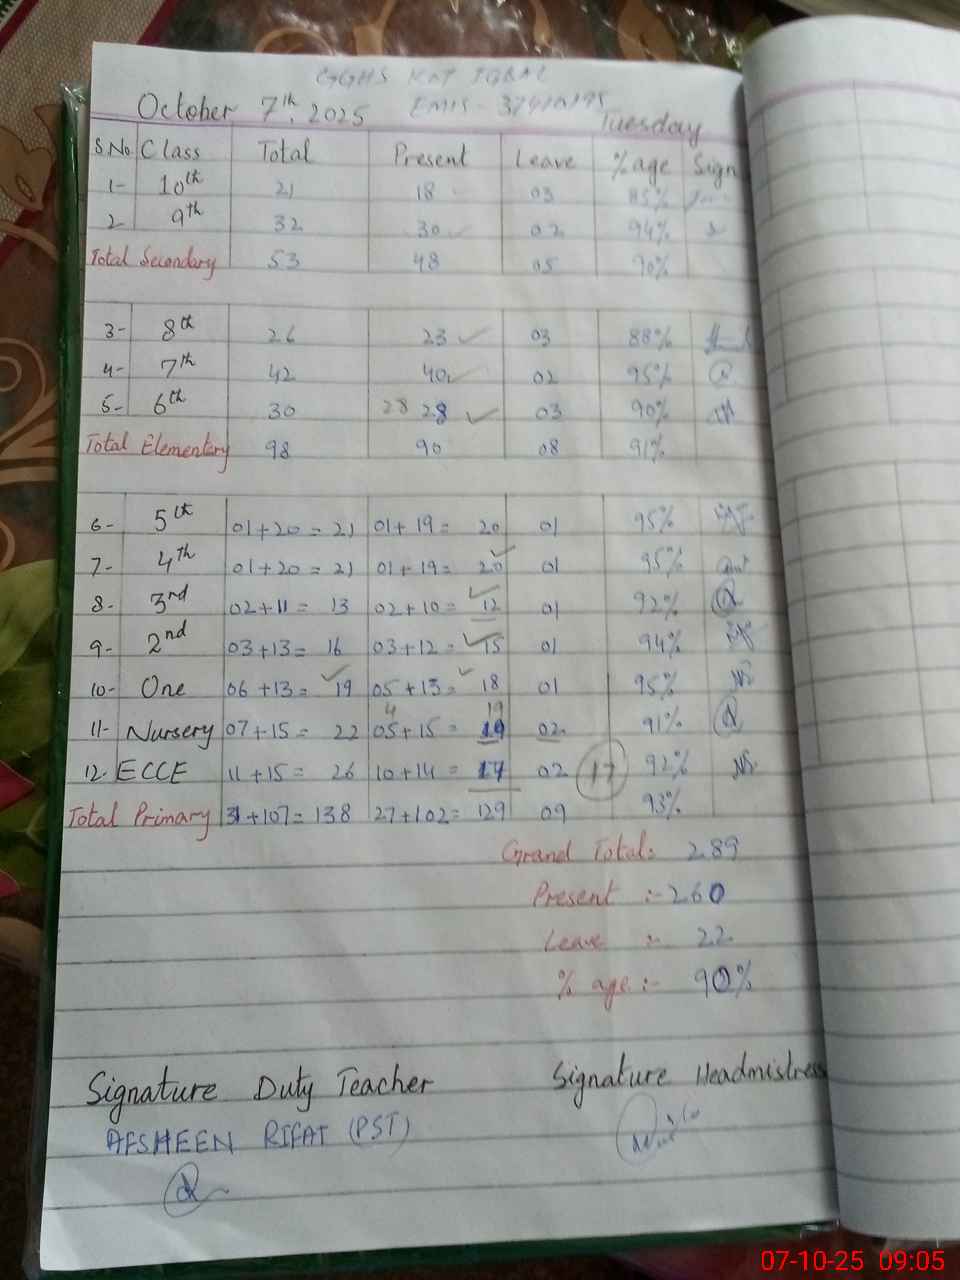 GGHS KOT IQBAL
October 7th, 2025 EMIS - Tuesday
S.No Class Total Present Leave %age Sign
1- 10th 21 18 03 85%
2- 9th 32 30 02 94%
Total Secondary 53 48 05 90%
3- 8th 26 23 03 88%
4- 7th 42 40 02 95%
5- 6th 30 28 28 03 90%
Total Elementary 98 90 08 91%
6- 5th 01+20 = 21 01+19 = 20 01 95%
7- 4th 01+20 = 21 01+19 = 20 01 95%
8- 3rd 02+11 = 13 02+10 = 12 01 92%
9- 2nd 03+13 = 16 03+12 = 15 01 94%
10- One 06+13 = 19 05+13 = 18 01 95%
4 19
11- Nursery 07+15 = 22 05+15 = 19 02 91%
12. ECCE 11+15 = 26 10+14 = 17 02 17 92%
Total Primary 31+107 = 138 27+102 = 129 09 93%
Grand Total: 289
Present :- 260
Leave :- 22
% age :- 90%
Signature Duty Teacher Signature Headmistress
AFSHEEN RIFAT (PST)
07-10-25 09:05